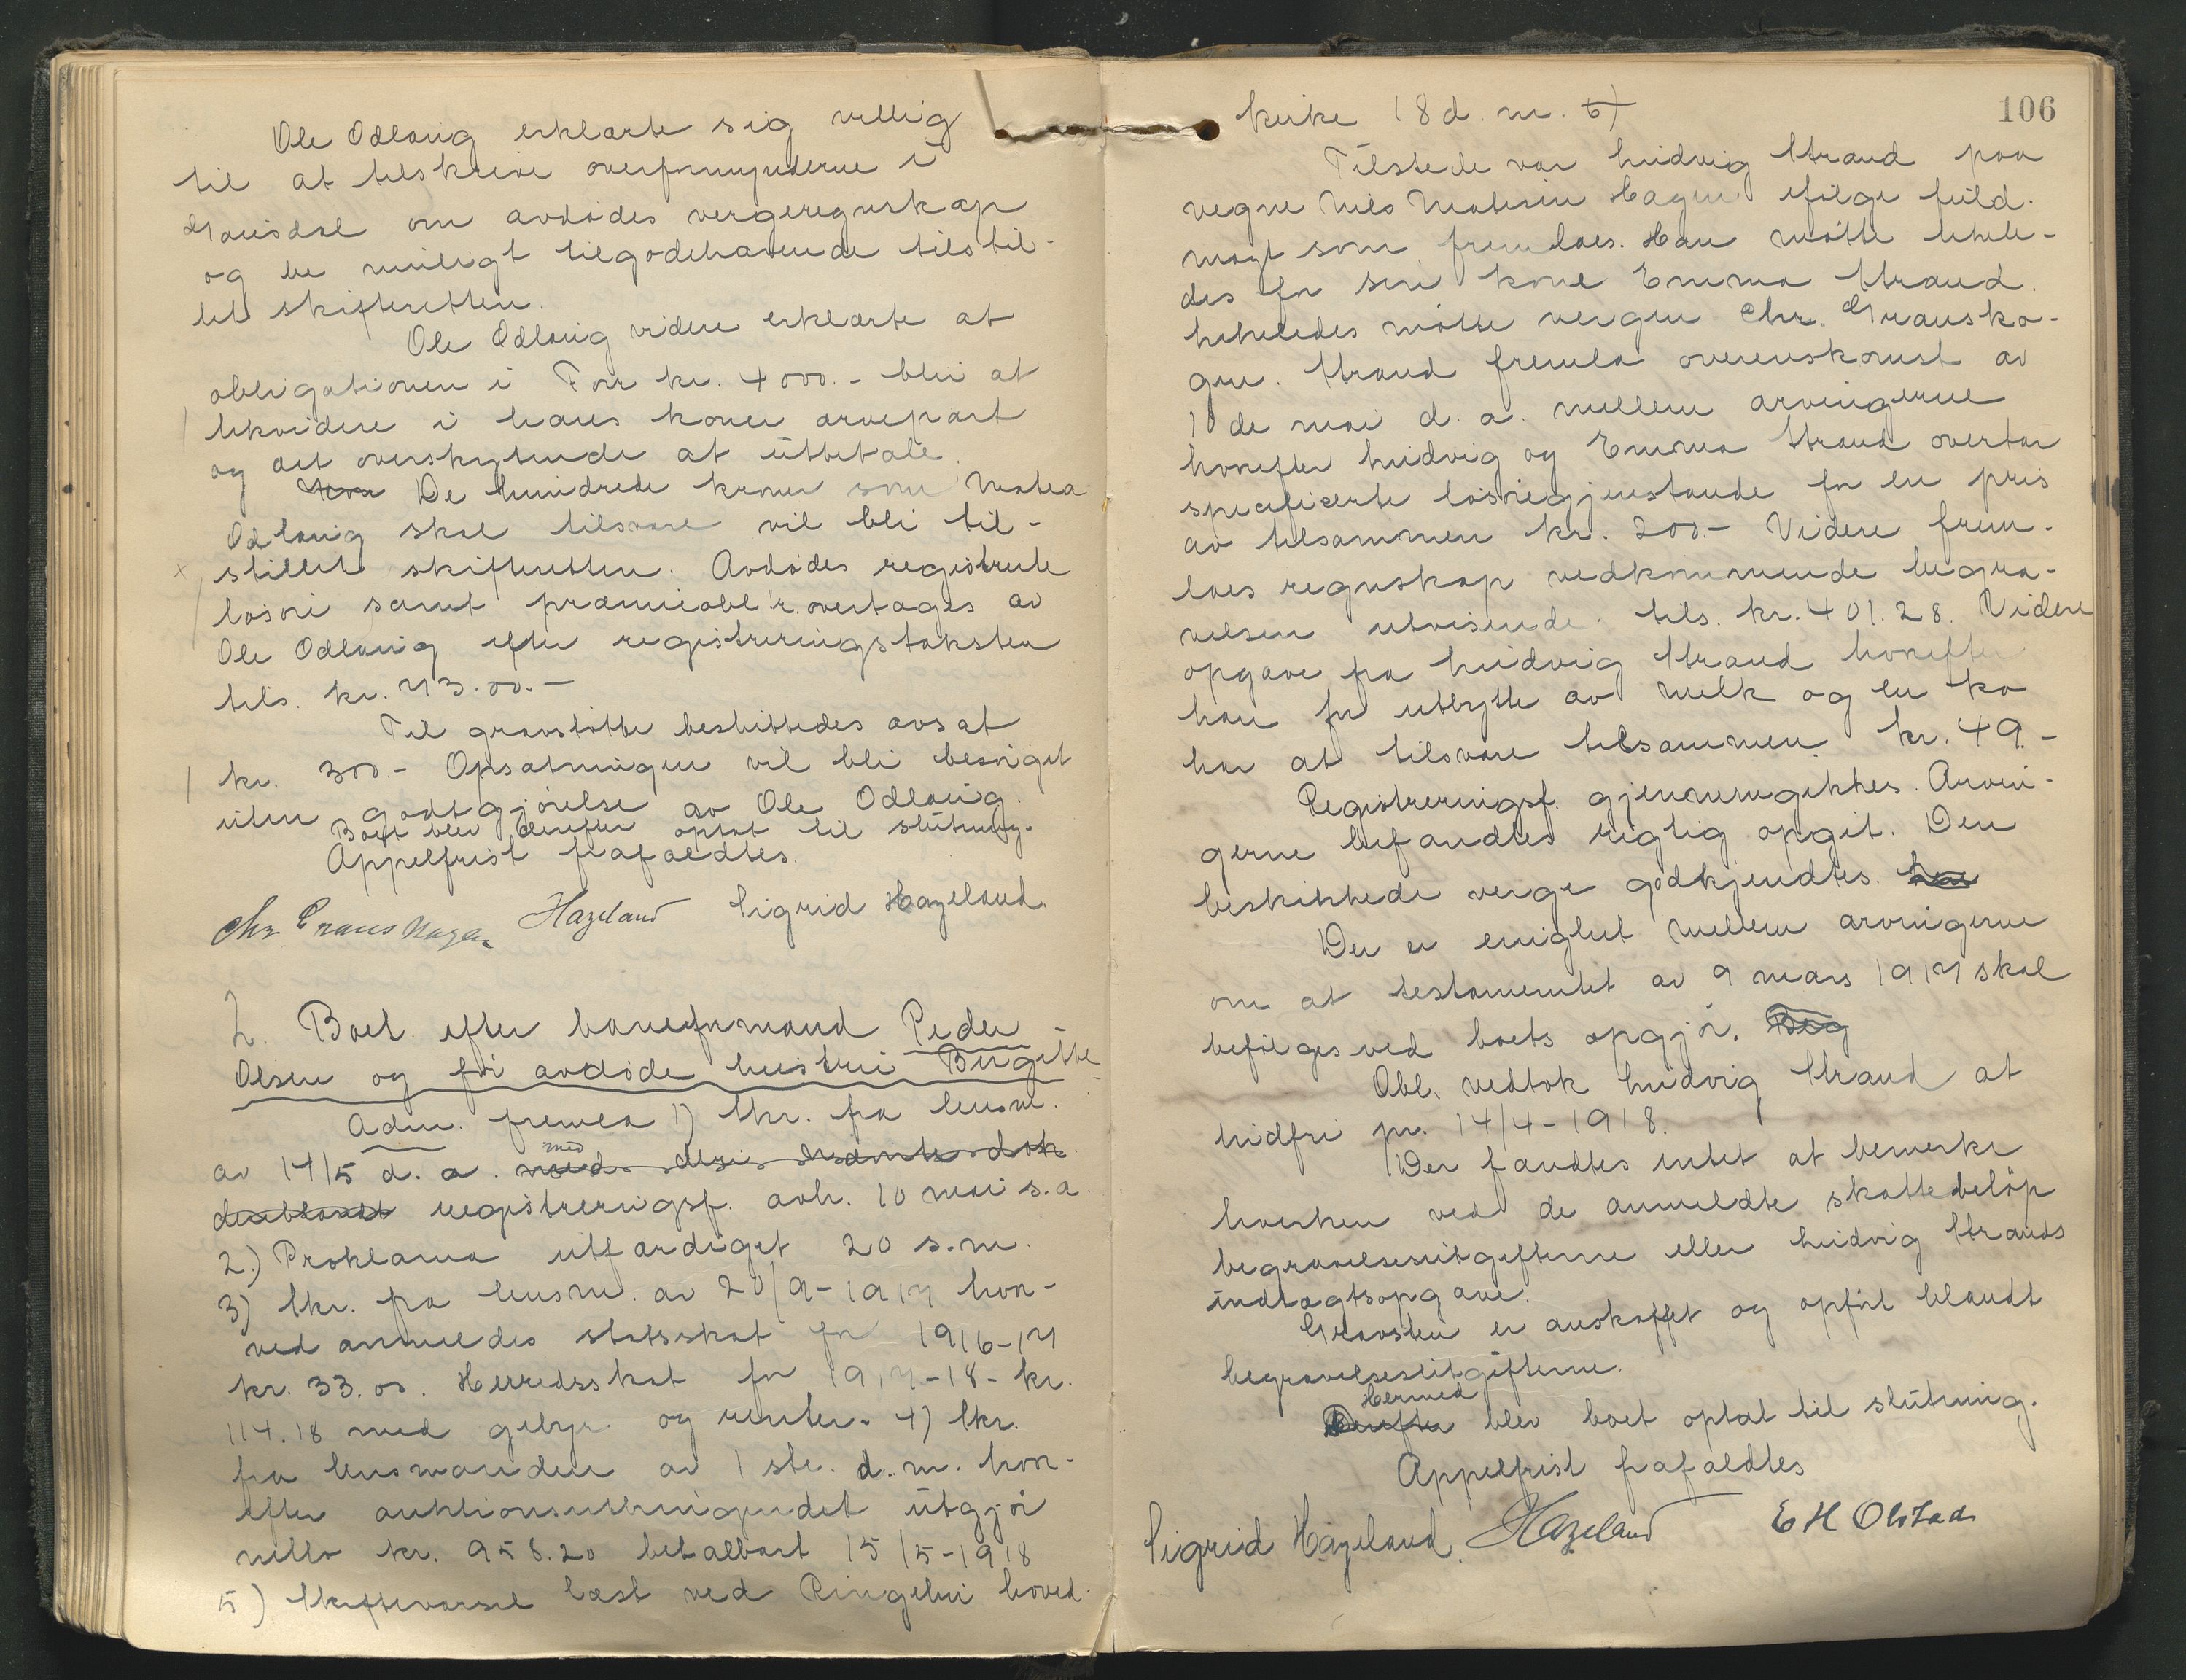 Ole Odlaug erklærte sig villig
til at tilskrive overformynderne i
Gausdal om avdødes vergeregnskap
og be muligt tilgodehavende tilstil-
let skifteretten.
Ole Odlaug videre erklærte at
obligationen i Forr kr. 4000.- blir at
likvidere i hans kones arvepart
og det overskytende at utbetale.
De hundrede kroner som Matea
Odlaug skal tilsvare vil bli til-
stillet skifteretten. Avdødes registrerte
løsøre samt præmieobl'r. overtages av
Ole Odlaug efter registreringstaksten
tils. kr. 73.00.-
Til gravstøtte besluttedes avsat
kr. 300.- Opsætningen vil bli besørget
uten godtgjørelse av Ole Odlaug.
Boet blev derefter optat til slutning.
Appelfrist frafaldtes.
Chr Granskogen Hazeland Sigrid Hazeland.
2. Boet efter baneformand Peder
Olsen og før avdøde hustru Birgitte
Adm. fremla 1) Skr. fra lensm.
av 14/5 d. a. med
registreringsf. avh. 10 mai s.a.
2.) Proklama utfærdiget 20 s.m.
3) Skr. fra lensm. av 20/9-1917 hvor-
ved anmeldes statsskat for 1916-17
kr. 33.00. Herredsskat for 1917-18- kr.
114.18 med gebyr og renter. 4) Skr.
fra lensmanden av 1ste. d.m. hvor-
efter auktionsutbringendet utgjør
netto kr. 958.20 betalbart 15/5-1918
5) Skiftevarsel læst ved Ringebu hoved-
106
kirke 18 d. m. 6)
Tilstede var Ludvig Strand paa
vegne Nils Mathisen Hagen ifølge fuld-
magt som fremlaes. Han møtte likele-
des for sin kone Emma Strand.
Likeledes møtte vergen Chr. Gransko-
gen. Strand fremla overenskomst av
10de mai d. a. mellem arvingerne
hvorefter Ludvig og Emma Strand overtar
specificerte løsøregjenstande for en pris
av tilsammen kr. 200.- Videre frem-
laes regnskap vedkommende begra-
velsen utvisende tils. kr. 401.28. Videre
opgave fra Ludvig Strand hvorefter
han for utbytte av melk og en ko
har at tilsvare tilsammen kr. 49.-
Registreringsf. gjennemgikkes. Arvin-
gerne befandtes rigtig opgit. Den
beskikkede verge godkjendtes.
Der er enighet mellem arvingerne
om at testamentet av 9 mars 1917 skal
befølges ved boets opgjør.
Obl. vedtok Ludvig Strand at
indfri pr. 14/4-1918.
Der fandtes intet at bemerke
hverken ved de anmeldte skattebeløp
begravelsesutgifterne eller Ludvig Strands
indtægtsopgave.
Gravsten er anskaffet og opført blandt
begravelsesutgifterne.
Hermed
Derefter blev boet optat til slutning.
Appelfrist frafaldtes
Sigrid Hazeland. Hazeland E H Olstad